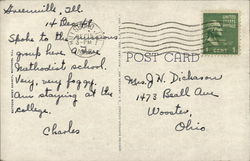 Greenville, Ill
14 Dec
Spoke to the missions
group here. A Free
Methodist school.
Very, very foggy.
Am staying at the
college.
Charles
POST CARD
Mrs. J. N. Dickason
1473 Beall Ave
Wooster,
Ohio
1 CENT 1